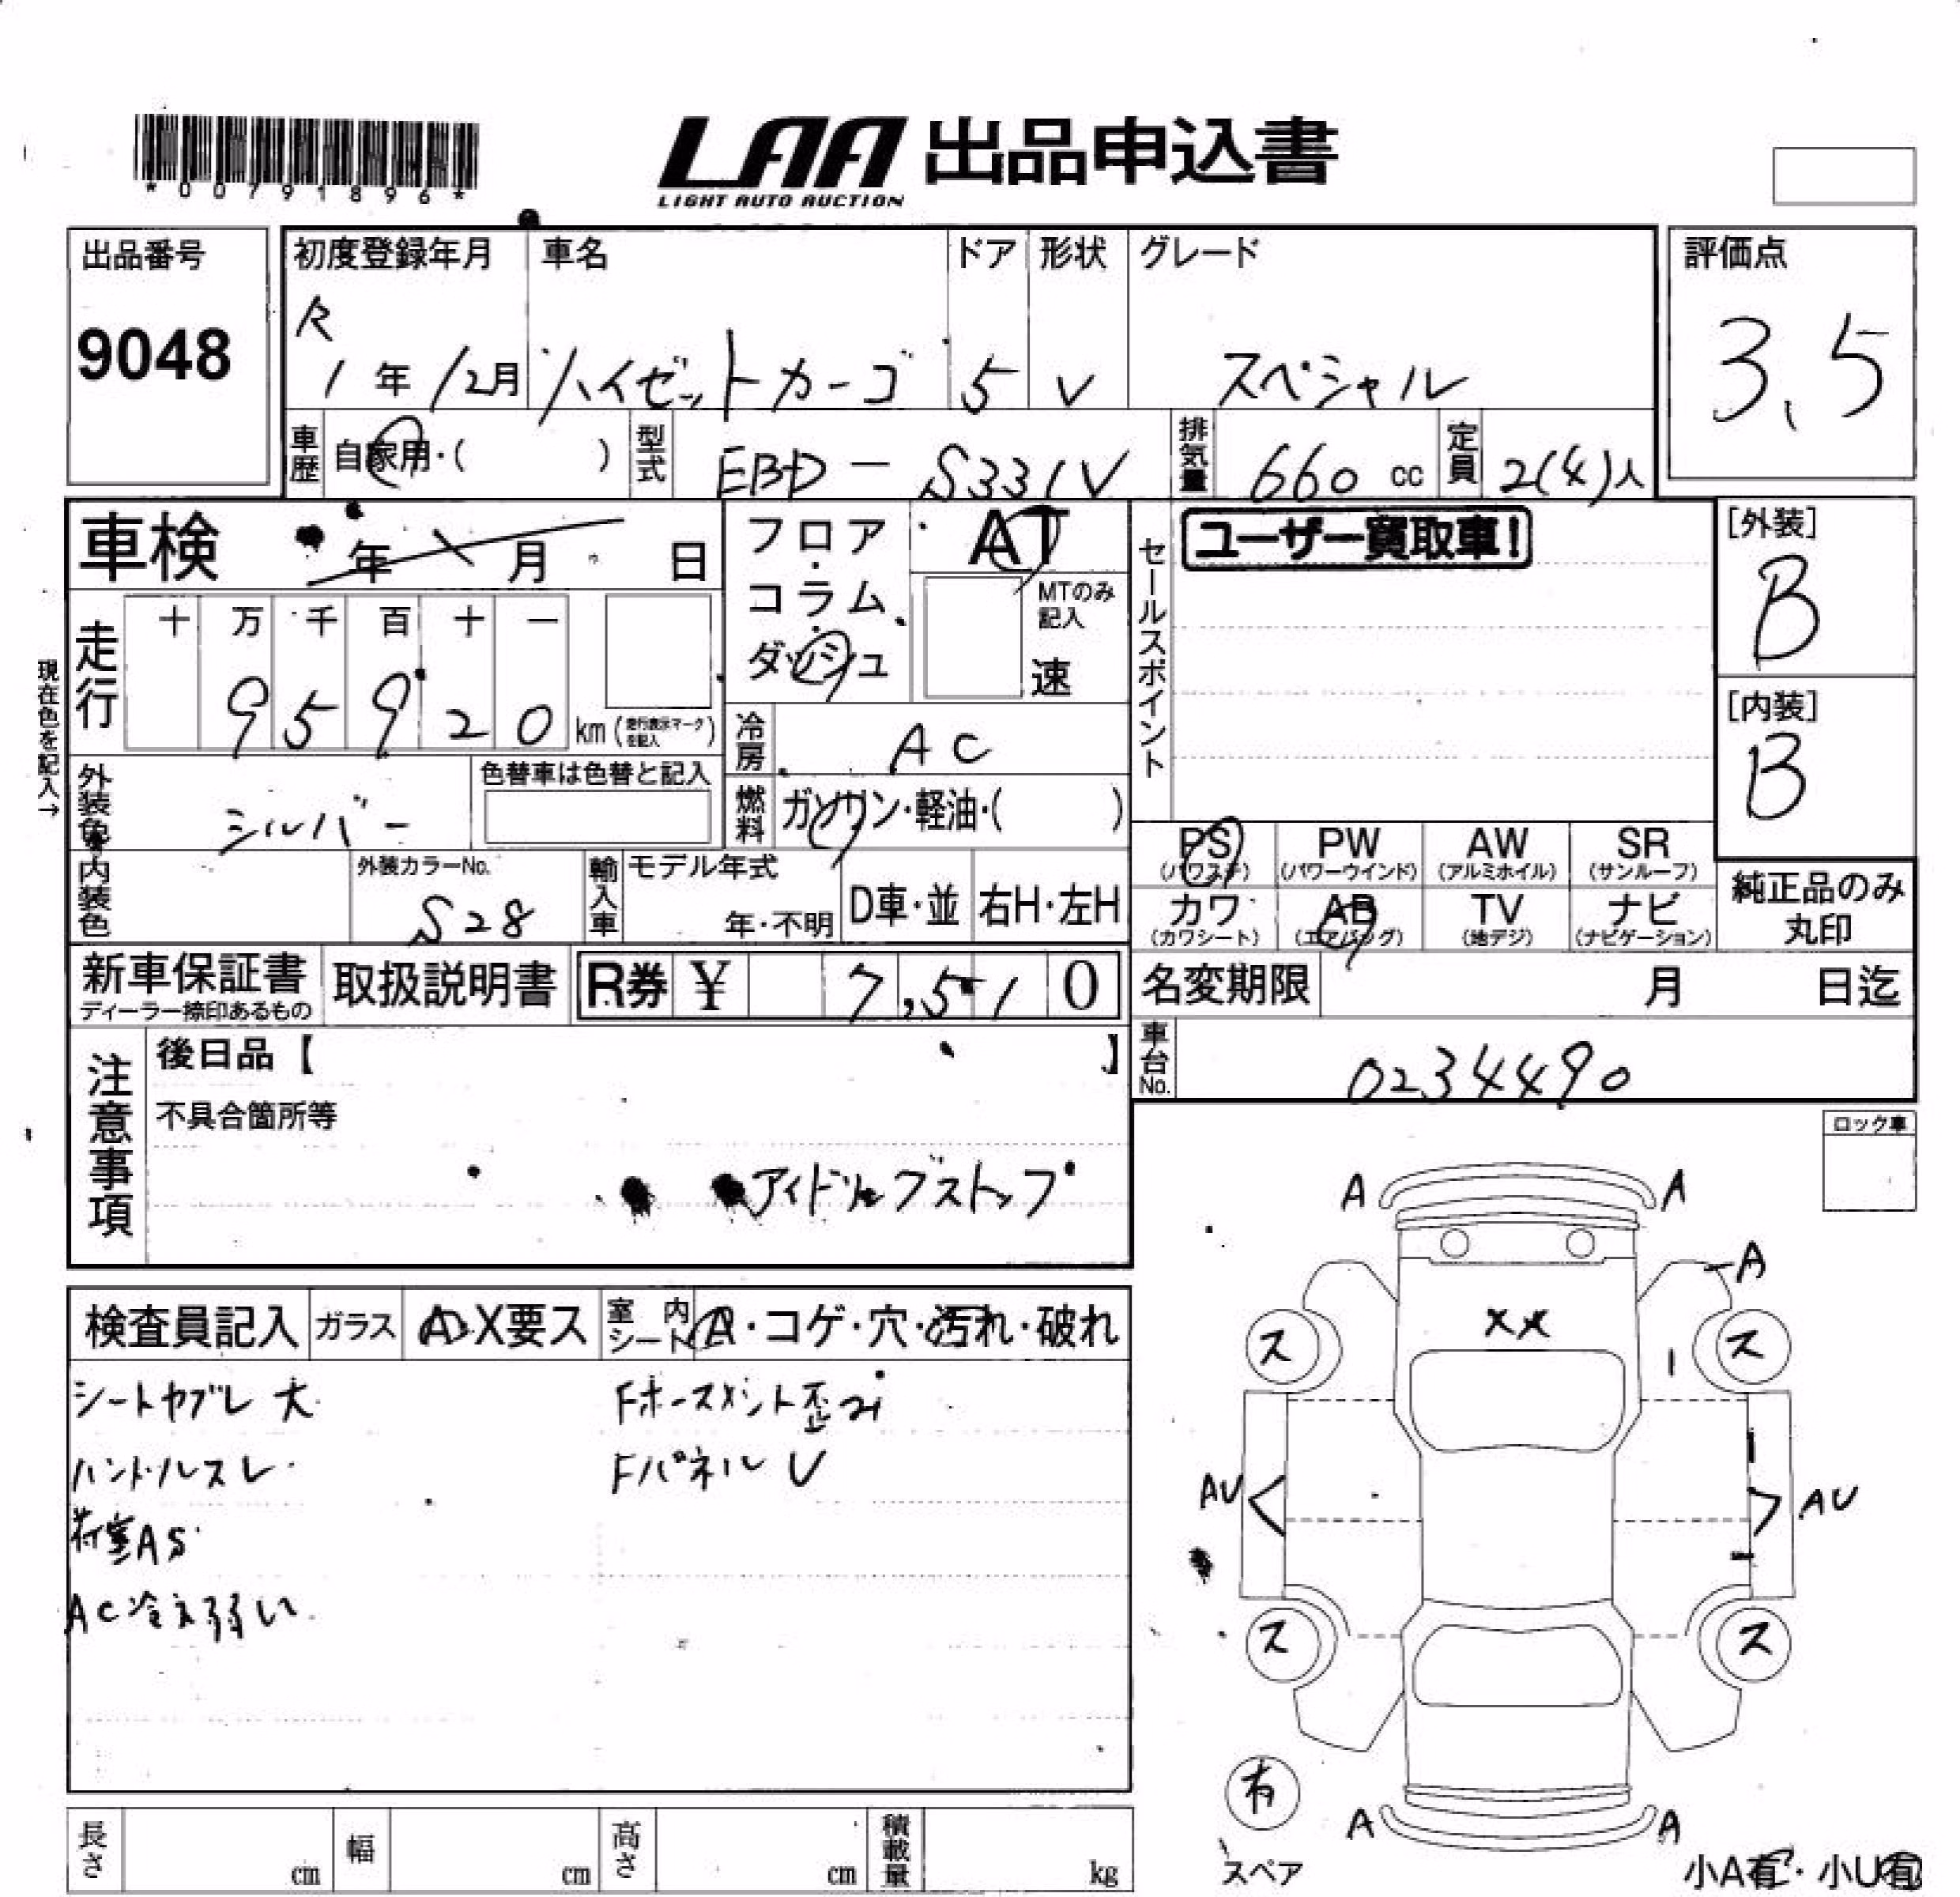 *00791896*
LAA 出品申込書
LIGHT AUTO AUCTION
出品番号
9048
初度登録年月
R
1年12月
車名
ハイゼットカーゴ
ドア
5
形状
V
グレード
スペシャル
評価点
3.5
車歴
自家用・( )
型式
EBD - S331V
排気量
660 cc
定員
2(4)人
車検 年 月 日
フロア・コラム・ダッシュ
AT
MTのみ記入
速
セールスポイント
ユーザー買取車!
[外装]
B
[内装]
B
現在色を記入→
走行
十 万 千 百 十 一
9 5 9 2 0
km (走行表示マークを記入)
冷房
AC
外装色
シルバー
色替車は色替と記入
燃料
ガソリン・軽油・( )
内装色
外装カラーNo.
S28
輸入車
モデル年式
年・不明
D車・並
右H・左H
PS
(パワステ)
PW
(パワーウインド)
AW
(アルミホイル)
SR
(サンルーフ)
カワ
(カワシート)
AB
(エアバッグ)
TV
(地デジ)
ナビ
(ナビゲーション)
純正品のみ
丸印
新車保証書
ディーラー捺印あるもの
取扱説明書
R券 ¥ 7,510
名変期限 月 日迄
注意事項
後日品【 】
不具合箇所等
アイドリングストップ
車台No.
0234490
ロック車
検査員記入
ガラス
A・X要ス
室内シート
A・コゲ・穴・汚れ・破れ
シートヤブレ大
Fホースメント歪み
ハンドルスレ
FパネルU
荷室AS
AC冷え弱い
A A
A
XX
ス ス
AU AU
ス ス
有
スペア
A A
小A有・小U有
長さ cm
幅 cm
高さ cm
積載量 kg